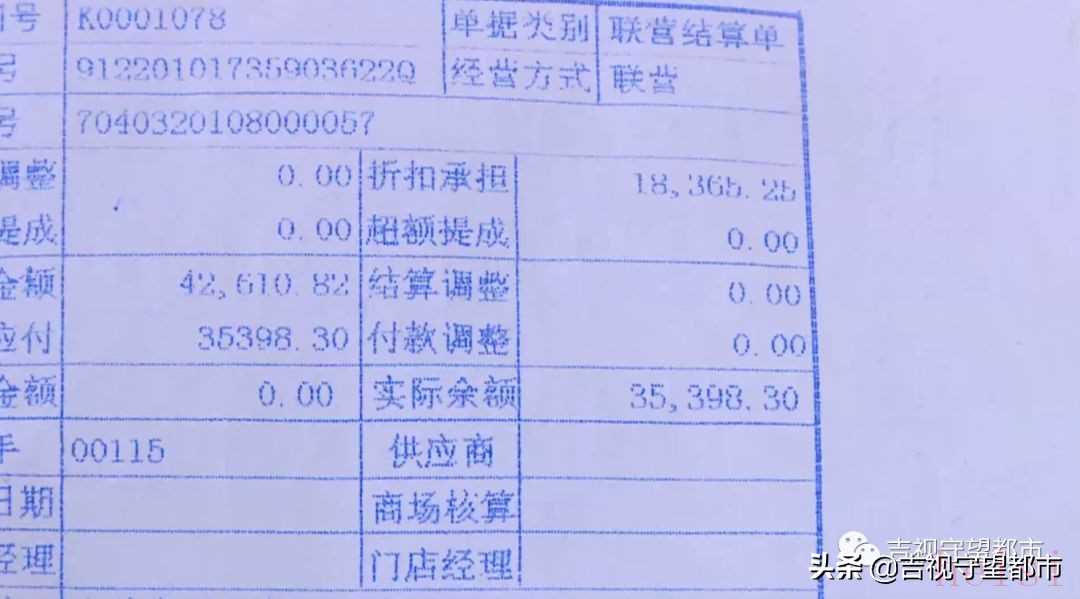 号 K0001078 单据类别 联营结算单
号 91220101735903622Q 经营方式 联营
号 7040320108000057
调整 0.00 折扣承担 18,365.25
提成 0.00 超额提成 0.00
金额 42,610.82 结算调整 0.00
应付 35398.30 付款调整 0.00
金额 0.00 实际余额 35,398.30
手 00115 供应商
日期 商场核算
经理 门店经理
吉视守望都市
头条 @吉视守望都市